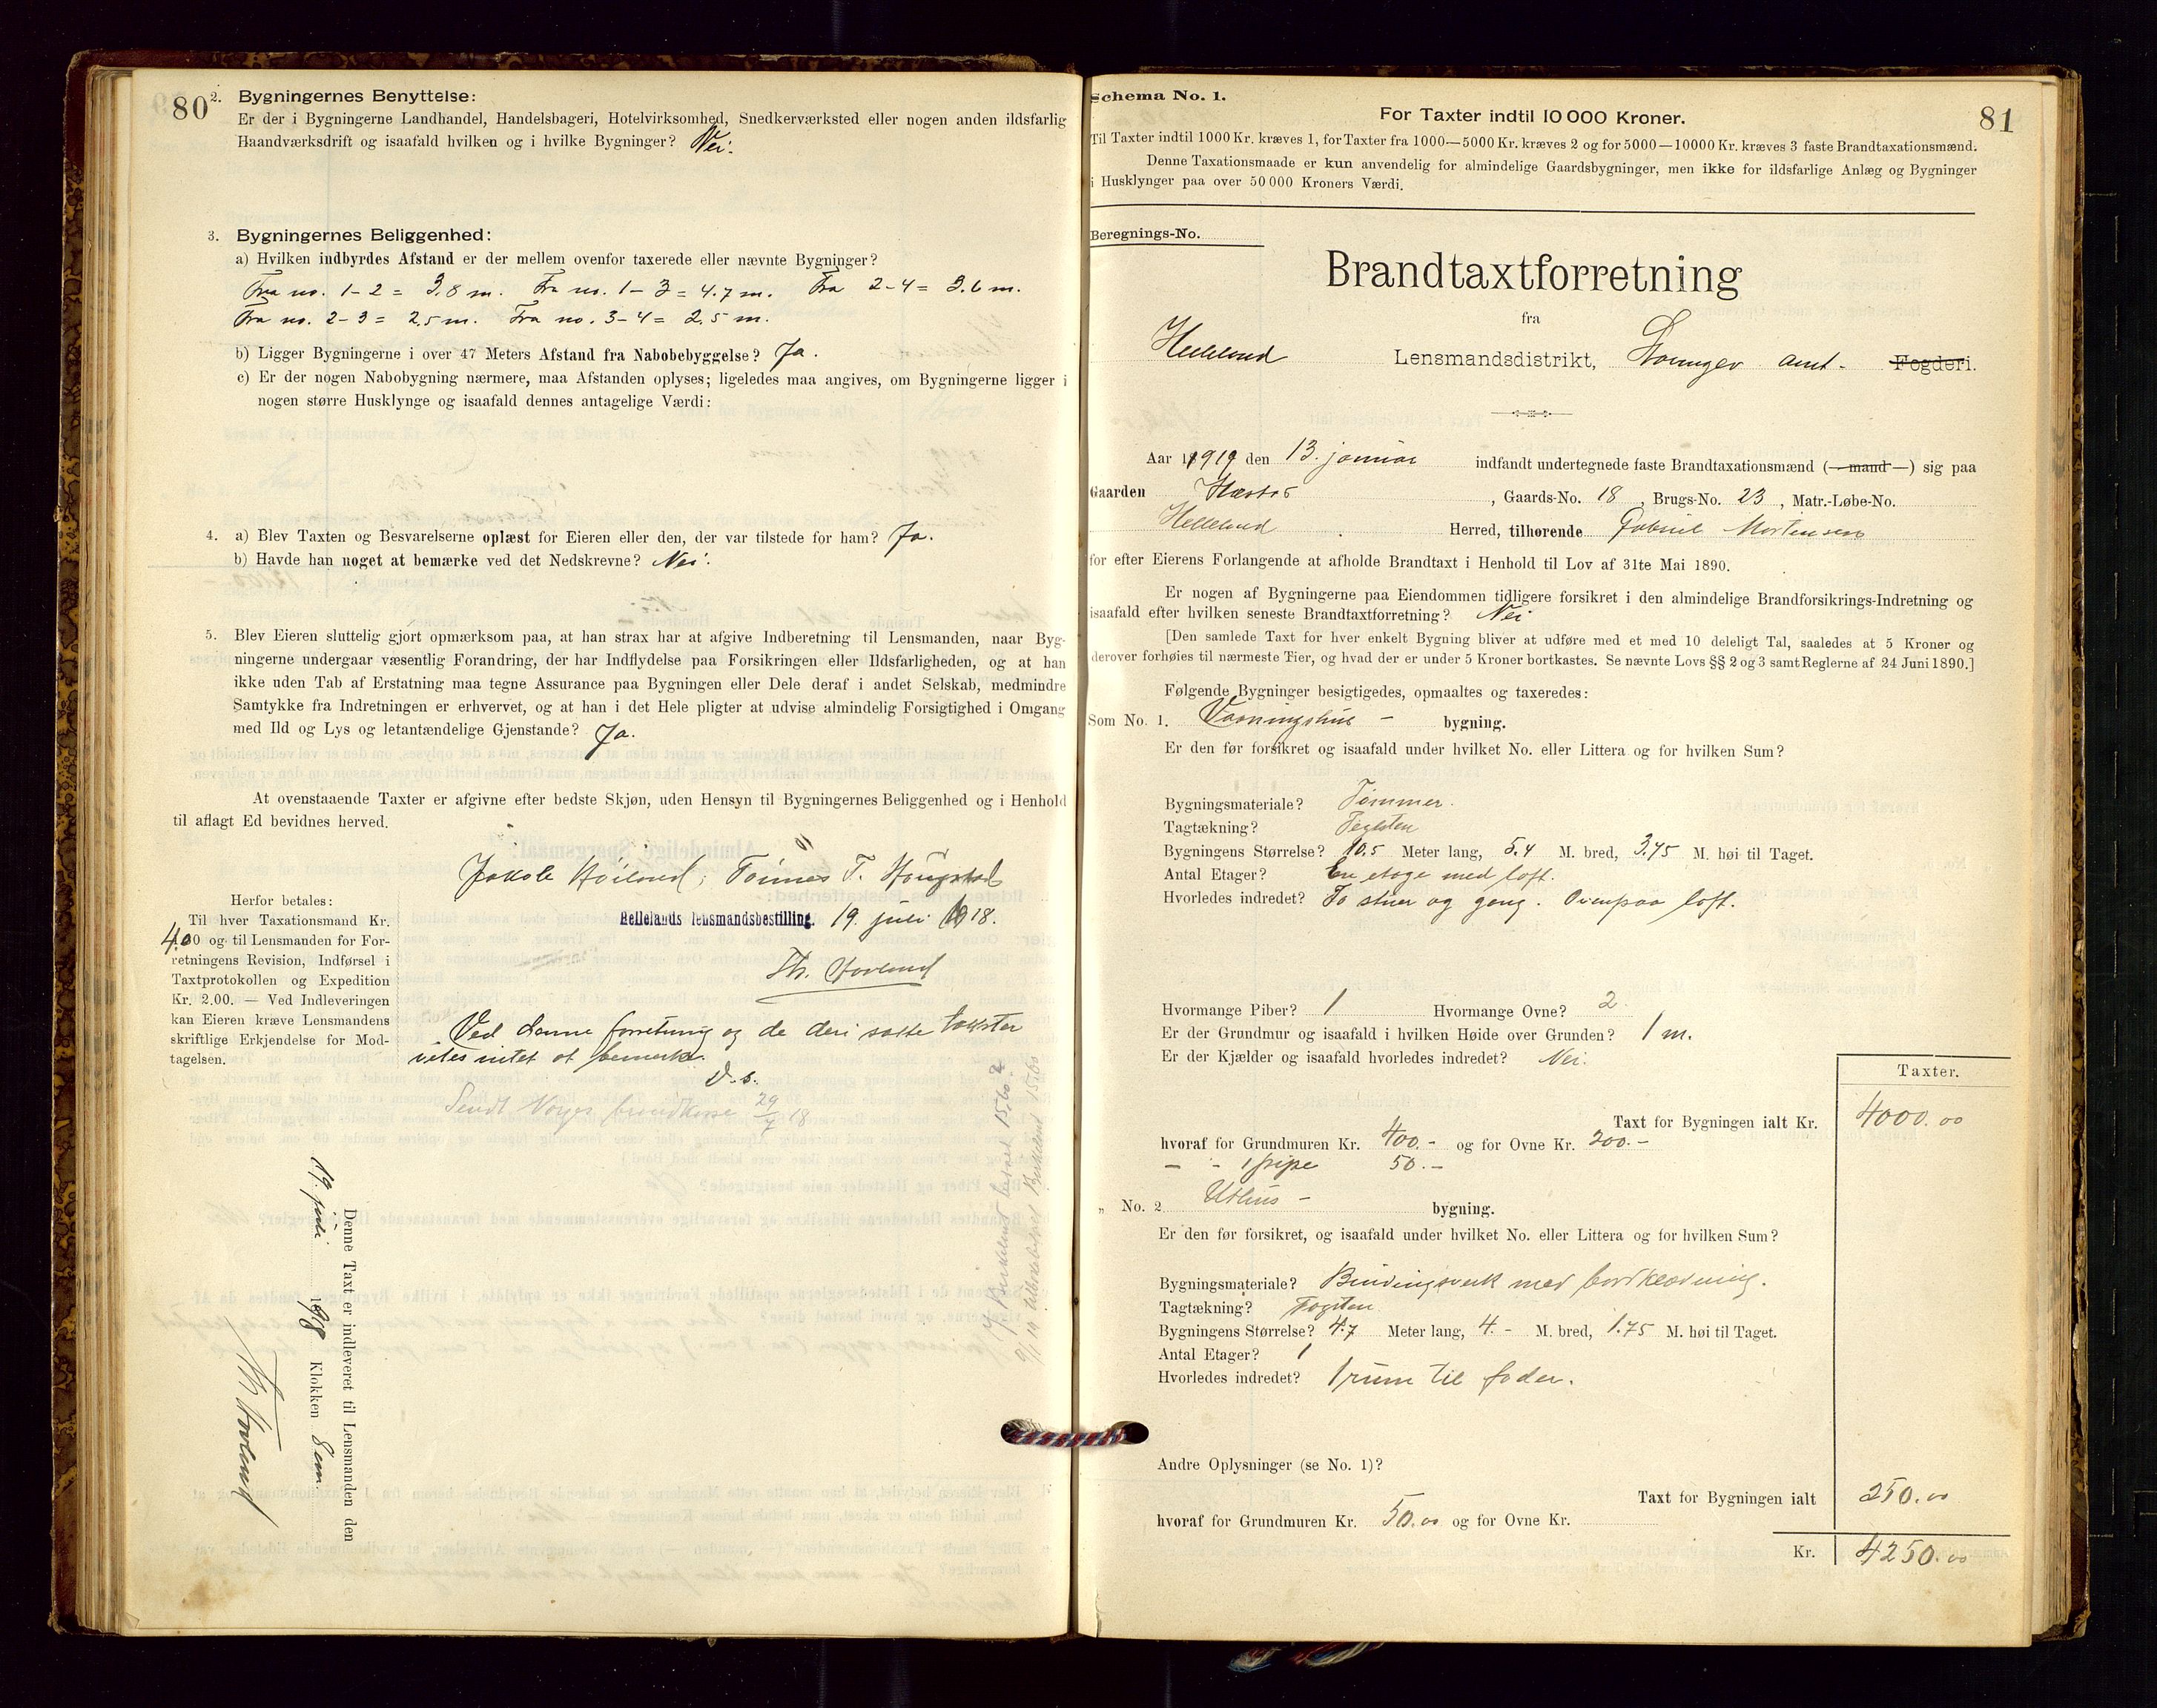 80
2. Bygningernes Benyttelse:
Er der i Bygningerne Landhandel, Handelsbageri, Hotelvirksomhed, Snedkerværksted eller nogen anden ildsfarlig
Haandværksdrift og isaafald hvilken og i hvilke Bygninger? Nei.
3. Bygningernes Beliggenhed:
a) Hvilken indbyrdes Afstand er der mellem ovenfor taxerede eller nævnte Bygninger?
Fra no. 1-2 = 3.8 m. Fra no. 1-3 = 4.7 m. Fra 2-4 = 3.6 m.
Fra no. 2-3 = 2,5 m. Fra no. 3-4 = 2,5 m.
b) Ligger Bygningerne i over 47 Meters Afstand fra Nabobebyggelse? Ja.
c) Er der nogen Nabobygning nærmere, maa Afstanden oplyses; ligeledes maa angives, om Bygningerne ligger i
nogen større Husklynge og isaafald dennes antagelige Værdi:
4. a) Blev Taxten og Besvarelserne oplæst for Eieren eller den, der var tilstede for ham? Ja.
b) Havde han noget at bemærke ved det Nedskrevne? Nei.
5. Blev Eieren sluttelig gjort opmærksom paa, at han strax har at afgive Indberetning til Lensmanden, naar Byg-
ningerne undergaar væsentlig Forandring, der har Indflydelse paa Forsikringen eller Ildsfarligheden, og at han
ikke uden Tab af Erstatning maa tegne Assurance paa Bygningen eller Dele deraf i andet Selskab, medmindre
Samtykke fra Indretningen er erhvervet, og at han i det Hele pligter at udvise almindelig Forsigtighed i Omgang
med Ild og Lys og letantændelige Gjenstande? Ja.
At ovenstaaende Taxter er afgivne efter bedste Skjøn, uden Hensyn til Bygningernes Beliggenhed og i Henhold
til aflagt Ed bevidnes herved.
Tønnes T.
Hellelands lensmandsbestilling. 19. juli 1918.
Th. Hovland
Herfor betales:
Til hver Taxationsmand Kr.
4.00 og til Lensmanden for For-
retningens Revision, Indførsel i
Taxtprotokollen og Expedition
Kr. 2.00. — Ved Indleveringen
kan Eieren kræve Lensmandens
skriftlige Erkjendelse for Mod-
tagelsen.
Ved denne forretning og de deri satte takster
vites intet at bemerke.
D. s.
Sendt Norges brandkasse 29/7 18
Denne Taxt er indleveret til Lensmanden den
19. juli 1918 Klokken 8 em.
Th. Hovland
81
Schema No. 1.
For Taxter indtil 10 000 Kroner.
Til Taxter indtil 1000 Kr. kræves 1, for Taxter fra 1000—5000 Kr. kræves 2 og for 5000—10000 Kr. kræves 3 faste Brandtaxationsmænd.
Denne Taxationsmaade er kun anvendelig for almindelige Gaardsbygninger, men ikke for ildsfarlige Anlæg og Bygninger
i Husklynger paa over 50 000 Kroners Værdi.
Beregnings-No.
Brandtaxtforretning
fra
Helleland Lensmandsdistrikt, Stavanger amt. Fogderi.
Aar 1919 den 13. januar indfandt undertegnede faste Brandtaxationsmænd (— mand —) sig paa
Gaarden , Gaards-No. 18 , Brugs-No. 23 , Matr.-Løbe-No.
Helleland Herred, tilhørende Gabriel Mortensen
for efter Eierens Forlangende at afholde Brandtaxt i Henhold til Lov af 31te Mai 1890.
Er nogen af Bygningerne paa Eiendommen tidligere forsikret i den almindelige Brandforsikrings-Indretning og
isaafald efter hvilken seneste Brandtaxtforretning? Nei
[Den samlede Taxt for hver enkelt Bygning bliver at udføre med et med 10 deleligt Tal, saaledes at 5 Kroner og
derover forhøies til nærmeste Tier, og hvad der er under 5 Kroner bortkastes. Se nævnte Lovs §§ 2 og 3 samt Reglerne af 24 Juni 1890.]
Følgende Bygninger besigtigedes, opmaaltes og taxeredes:
Som No. 1. Vaaningshus - bygning.
Er den før forsikret og isaafald under hvilket No. eller Littera og for hvilken Sum?
Bygningsmateriale? Tømmer.
Tagtækning? Teglsten
Bygningens Størrelse? 10.5 Meter lang, 5.4 M. bred, 3.75 M. høi til Taget.
Antal Etager? En etage med loft.
Hvorledes indredet? To stuer og gang. Ovenpaa loft.
Hvormange Piber? 1 Hvormange Ovne? 2
Er der Grundmur og isaafald i hvilken Høide over Grunden? 1 m.
Er der Kjælder og isaafald hvorledes indredet? Nei.
Taxter.
Taxt for Bygningen ialt Kr. 4000.00
hvoraf for Grundmuren Kr. 400.- og for Ovne Kr. 200.-
- - 1 pipe 50.-
„ No. 2 Uthus - bygning.
Er den før forsikret, og isaafald under hvilket No. eller Littera og for hvilken Sum?
Bygningsmateriale? Bindingsverk med bordklædning.
Tagtækning?
Bygningens Størrelse? 4.7 Meter lang, 4.- M. bred, 1.75 M. høi til Taget.
Antal Etager? 1
Hvorledes indredet? 1 rum til foder.
Andre Oplysninger (se No. 1)?
Taxt for Bygningen ialt 250.00
hvoraf for Grundmuren Kr. 50.00 og for Ovne Kr.
Kr. 4250.00